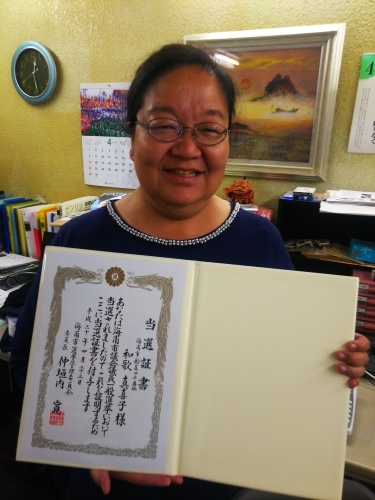 当選証書
和歌 真喜子 様
あなたは海南市議会議員一般選挙において
当選されましたのでこれを証明するため
ここに当選証書を付与します
平成三十年四月
海南市選挙管理委員会
委員長 仲垣内
4
4